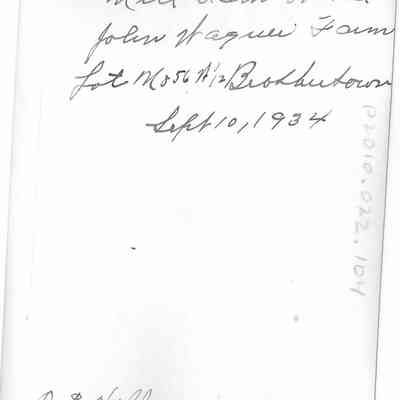 John Wagner Farm
Lot No 56 N 1/2 Brothertown
Sept 10, 1934
P2010.022.104